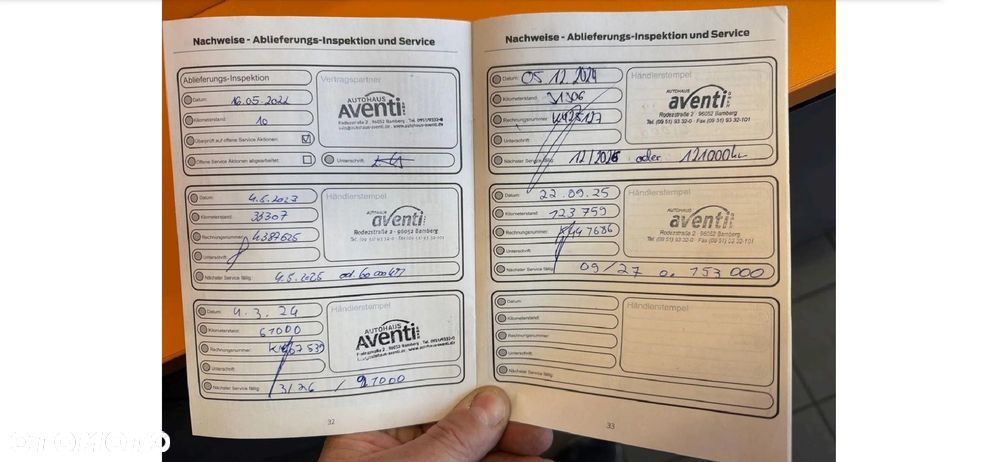 Nachweise - Ablieferungs-Inspektion und Service
Ablieferungs-Inspektion
Datum: 16.05.2022
Kilometerstand: 10
Überprüft auf offene Service Aktionen:
Offene Service Aktionen abgearbeitet:
Vertragspartner
AUTOHAUS
Aventi
Rodezstraße 2 · 96052 Bamberg · Tel. 0951/9332-0
info@autohaus-aventi.de, www.autohaus-aventi.de
Unterschrift:
Datum: 4.5.2023
Kilometerstand: 33307
Rechnungsnummer: 4387625
Unterschrift:
Nächster Service fällig: 4.5.2025 od. 60 000 km
Händlerstempel
AUTOHAUS
aventi
Rodezstraße 2 · 96052 Bamberg
Tel. (09 51) 93 32-0
Datum: 4.3.24
Kilometerstand: 61000
Rechnungsnummer:
Unterschrift:
Nächster Service fällig: 3/26 / 91000
Händlerstempel
AUTOHAUS
Aventi
Rodezstraße 2 · 96052 Bamberg · Tel. 0951/9332-0
32
Nachweise - Ablieferungs-Inspektion und Service
Datum: 05.12.2024
Kilometerstand: 91306
Rechnungsnummer: K428127
Unterschrift:
Nächster Service fällig: 12/2026 oder 121000km
Händlerstempel
AUTOHAUS
aventi
Rodezstraße 2 · 96052 Bamberg
Tel. (09 51) 93 32-0 · Fax (09 51) 93 32-101
Datum: 22.09.25
Kilometerstand: 123 759
Rechnungsnummer: K447686
Unterschrift:
Nächster Service fällig: 09/27 o. 153 000
Händlerstempel
AUTOHAUS
aventi
Rodezstraße 2 · 96052 Bamberg
Tel. (09 51) 93 32-0 · Fax (09 51) 93 32-101
Datum:
Kilometerstand:
Rechnungsnummer:
Unterschrift:
Nächster Service fällig:
Händlerstempel
33
OTOMOTO